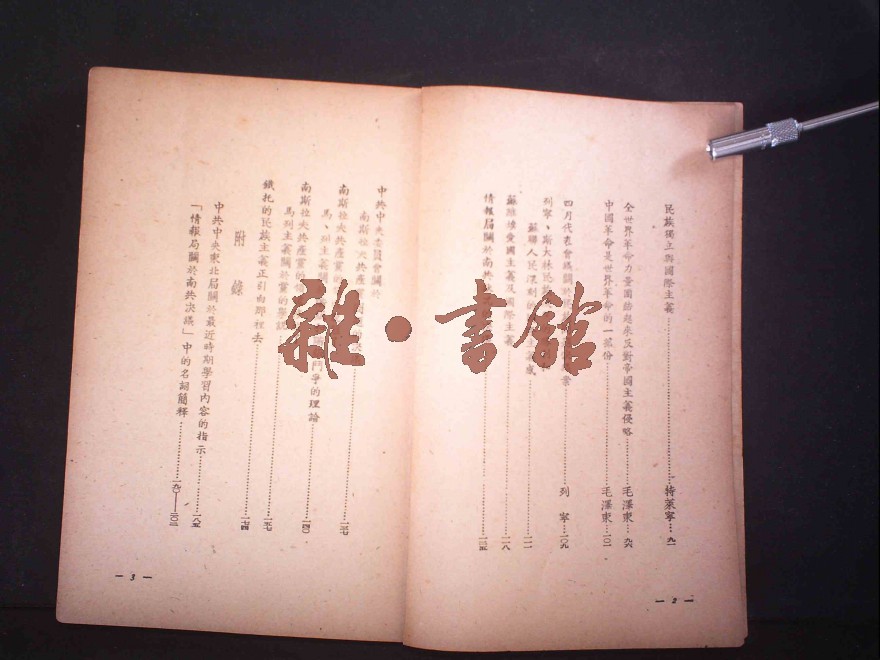 民族獨立與國際主義……特萊寧…九一
全世界革命力量團結起來反對帝國主義侵略……毛澤東…九六
中國革命是世界革命的一部份……毛澤東…一〇一
四月代表會議關於 案……列 寧…一〇九
列寧、斯大林民
蘇聯人民深刻的 ……一一一
蘇維埃愛國主義及國際主義……一一八
情報局關於南共
— 2 —
中共中央委員會關於
南斯拉夫共產黨問題的決議……一三七
南斯拉夫共產黨的
馬、列主義 鬥爭的理論……一四〇
南斯拉夫共產黨的
馬列主義關於黨的學說
鐵托的民族主義正引向那裡去……一七四
附 錄
中共中央東北局關於最近時期學習內容的指示……一八五
「情報局關於南共決議」中的名詞簡釋……一九〇—二〇三
— 3 —
雜·書館